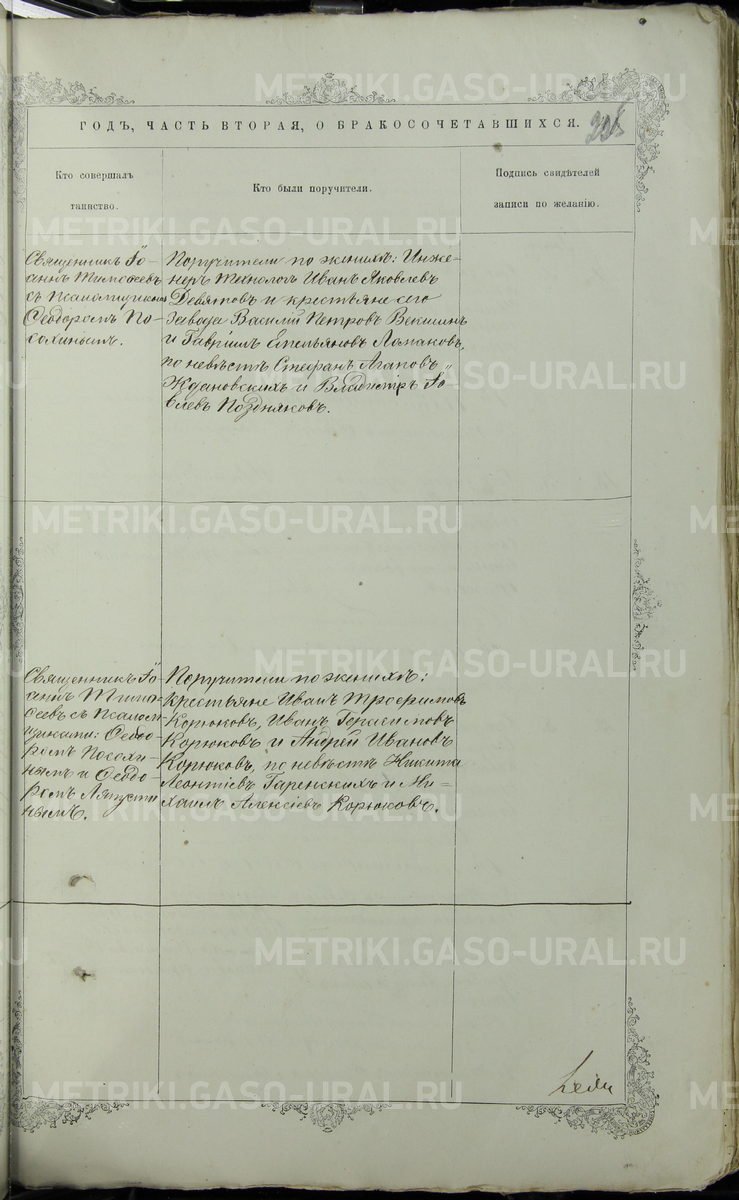 ГОДЪ, ЧАСТЬ ВТОРАЯ, О БРАКОСОЧЕТАВШИХСЯ.
Кто совершалъ
таинство.
Кто были поручители.
Подпись свидѣтелей
записи по желанію.
Священникъ Іо-
аннъ Тимофеевъ
съ Псаломщикомъ
Ѳеодоромъ По-
солинымъ.
Поручители по женихѣ: Инже-
неръ Технологъ Иванъ Яковлевъ
Девятовъ и крестьяне сего
Завода Василій Петровъ Векшинъ
и Гавріилъ Емельяновъ Ломановъ,
по невѣстѣ Стефанъ Агаповъ
Ждановскихъ и Владиміръ Іо-
влевъ Поздняковъ.
Священникъ Іо-
аннъ Тимо-
феевъ съ Псалом-
щиками: Ѳеодо-
ромъ Посоли-
нымъ и Ѳеодо-
ромъ Ляпусти-
нымъ.
Поручители по женихѣ:
крестьяне Иванъ Трофимовъ
Корюковъ, Иванъ Герасимовъ
Корюковъ и Андрей Ивановъ
Корюковъ, по невѣстѣ Никита
Леонтіевъ Гаренскихъ и Ми-
хаилъ Алексіевъ Корюковъ.
METRIKI.GASO-URAL.RU